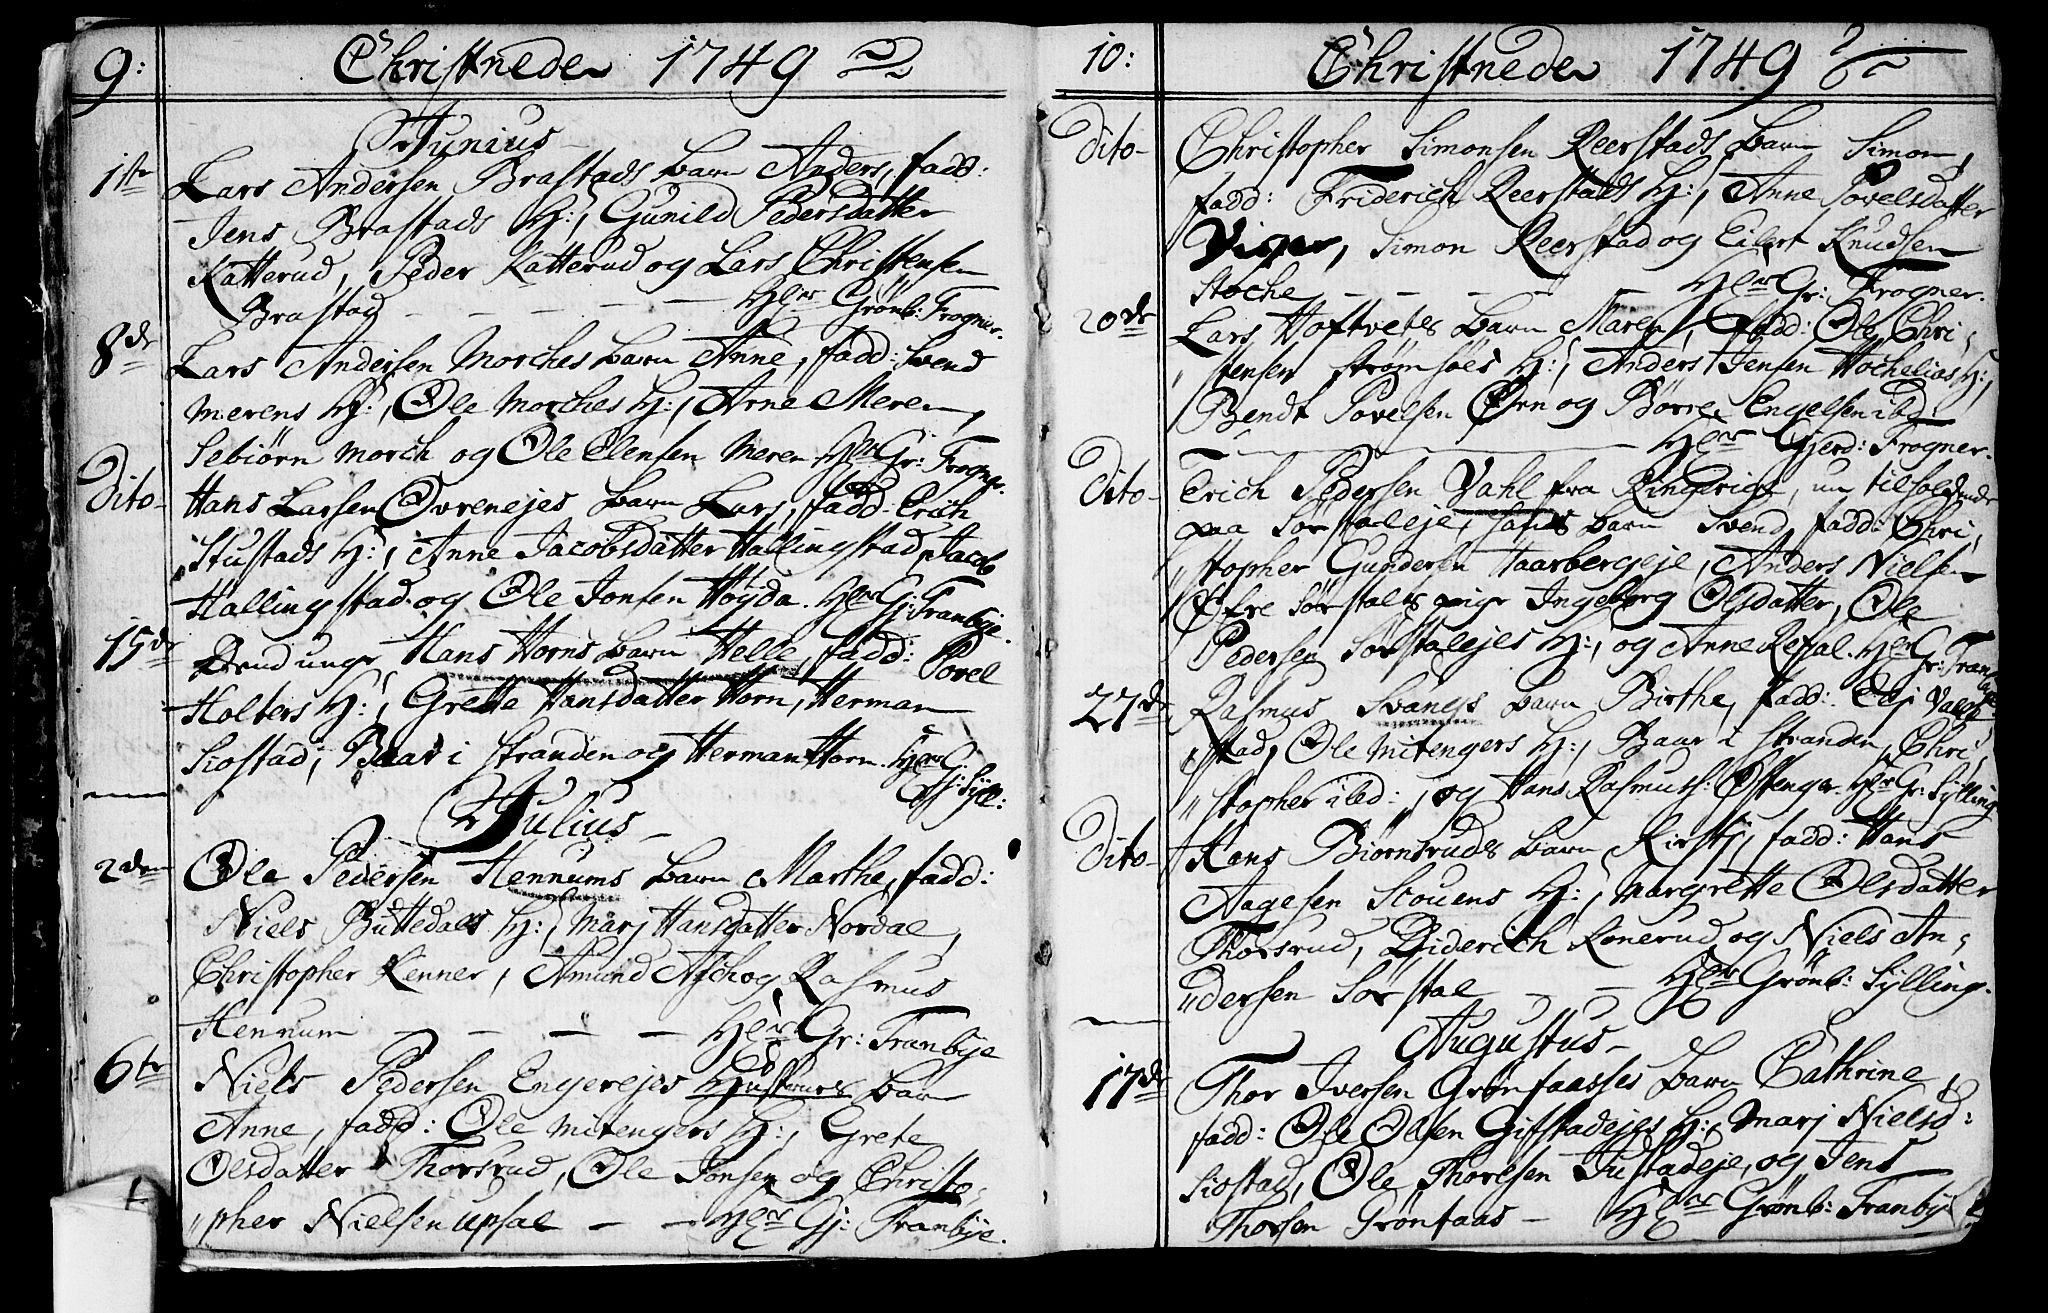 9: Christneder 1749
Junius
1ste Lars Andersen Brastads barn Anders, fadd:
Jens Brastads H:, Gunild Pedersdatter
Katterud, Peder Katterud og Lars Christensen
Brastad — — — Hler Grønb: Frogner.
8de Lars Andersen Morches barn Anne, fadd: Svend
Merens H:, Ole Morches H:, Arne Meren,
Sebiørn Morch og Ole Elensen Meren Hler Gr: Frogner.
Dito Hans Larsen Øvreneies barn Lars, fadd: Erich
Stustads H:, Anne Jacobsdatter Hallingstad, Jacob
Hallingstad og Ole Jonsen Høyda. Hler Gr: Franbye.
15de Hans Horns barn Helle, fadd: Povel
Holters H:, Grette Hansdatter Horn, Herman
Siostad, Baar i Stranden og Herman Horn. Hler Gr: Syll:
Julius
2den Ole Pedersen Hennums barn Marthe, fadd:
Niels Buttedals H:, Marj Hansdatter Nordal,
Christopher Renner, Amund Asch og Rasmus
Hennum — — — — Hler Gr: Franbye
6te Niels Pedersen Engereies Hustrues barn
Anne, fadd: Ole Mitengers H:, Grete
Olsdatter Thorsrud, Ole Jonsen og Christo-
"pher Nielsen Upsal — — Hler Gr: Franbye.
10: Christneder 1749
Dito Christopher Simonsen Reerstads barn Simon,
fadd: Friderich Reerstads H:, Anne Povelsdatter
Viger, Simon Reerstad og Eilert Knudsen
Stoche — — — — Hler Gr: Frogner.
20de Lars Hoftvetes barn Maren, fadd: Ole Chri-
"stensen Strømsøes H:, Anders Jensen Hochelias H:,
Bendt Povelsen Ørn og Børre Engelsen ibd:
— Hler Gierd: Frogner.
Dito Erich Pedersen Vahl fra Ringerige, nu tilholdende
paa Sørstaleje, barn Svend, fadd: Chri-
"stopher Gundersen Haarbergeje, Anders Nielsen
Øfre Sørstals pige Ingeborg Olsdatter, Ole
Pedersen Sørstalejes H:, og Anne Refsal. Hler Gr: Franbye.
27de Rasmus Svanes barn Birthe, fadd: Elj Valg-
"stad, Ole Mitengers H:, Baar i Stranden, Chri-
"stopher ibd:, og Hans Rasmuss: Østenger. Hler Gr: Sylling
Dito Hans Biørnsruds barn Kirstj, fadd: Hans
Aagesen Stouens H:, Margrette Olsdatter
Thorsrud, Diderich Rønerud og Niels An-
"dersen Sørstal — — Hler Grønb: Sylling.
Augustus
17de Thor Iversen Grønfaasses barn Cathrine,
fadd: Ole Olsen Gifstadejes H:, Marj Nielsd:
Siostad, Ole Thoresen Justadeje, og Jens
Thorsen Grønfaas — Hler Grønb: Franbye